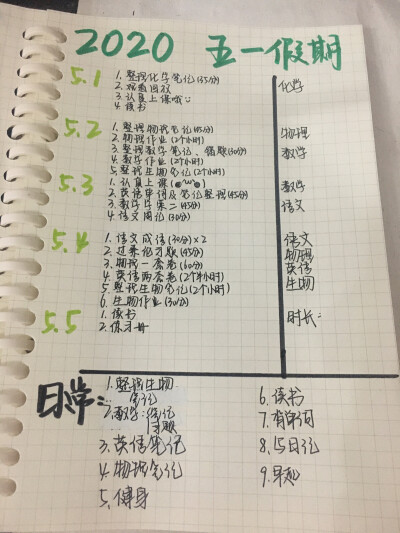 2020 五一假期
5.1
1. 整理化学笔记(35分)
2. 观看回放
3. 认真上课哦
4. 读书
化学
5.2
1. 整理物理笔记(45分)
2. 物理作业(2个小时)
3. 整理数学笔记、错题(30分)
4. 数学作业(2个小时)
5. 整理生物笔记(2个小时)
物理
数学
5.3
1. 认真上课
2. 英语单词及笔记整理(45分)
3. 数学学案二(45分)
4. 语文周记(30分)
数学
语文
5.4
1. 语文成语(30分)×2
2. 过来化习题(45分)
3. 物理一套卷(60分)
4. 英语两套卷(2个半小时)
5. 整理生物笔记(2个小时)
6. 生物作业(30分)
语文
物理
英语
生物
5.5
1. 读书
2. 练习册
时长:
日常:
1. 整理生物
笔记
2. 数学:笔记
错题
3. 英语笔记
4. 物理笔记
5. 健身
6. 读书
7. 背单词
8. 写日记
9. 早起